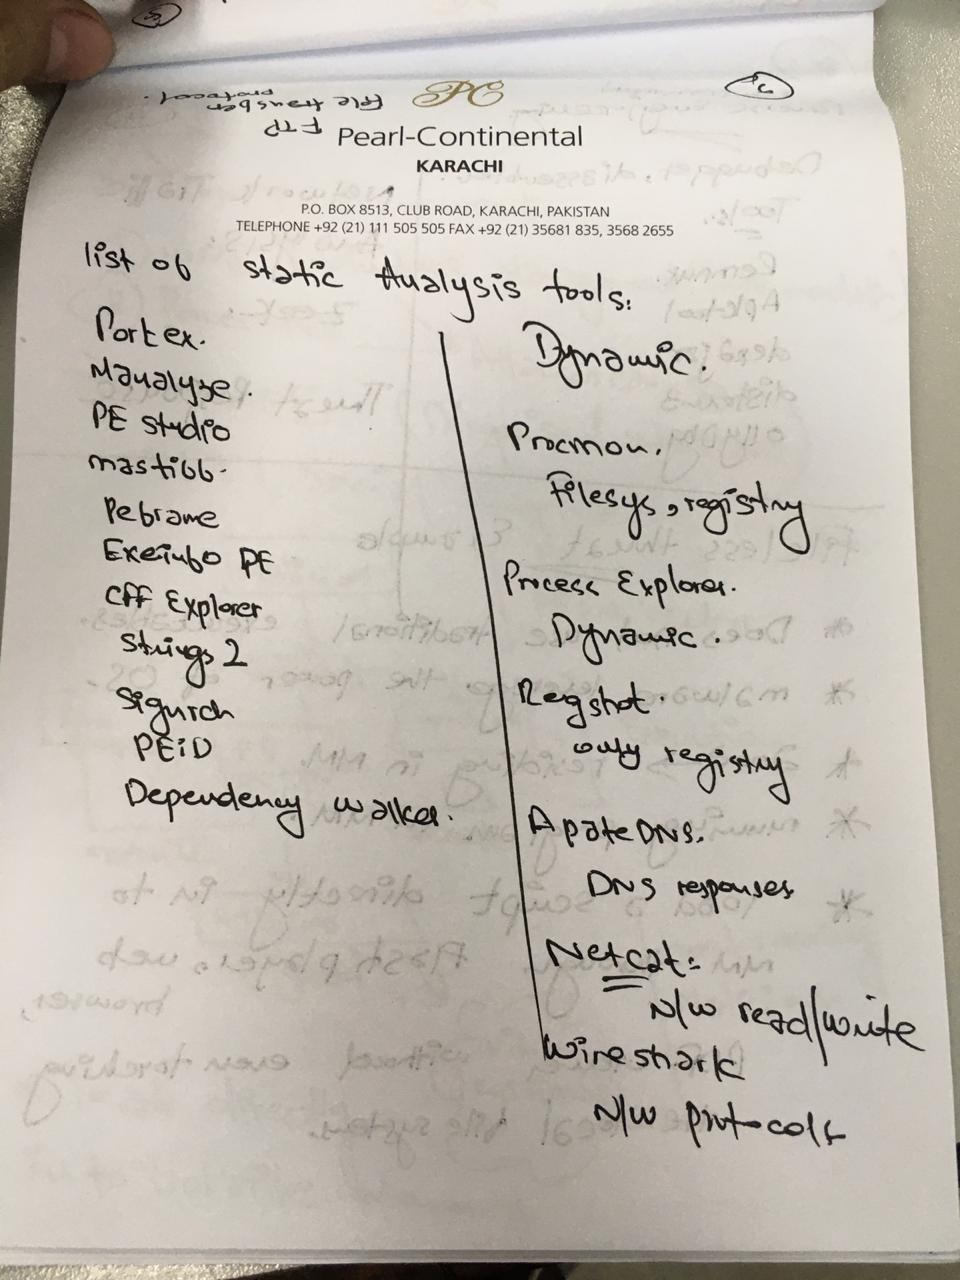 5
6
FTP
File transfer
protocol.
PC
Pearl-Continental
KARACHI
P.O. BOX 8513, CLUB ROAD, KARACHI, PAKISTAN
TELEPHONE +92 (21) 111 505 505 FAX +92 (21) 35681 835, 3568 2655
list of static Analysis tools:
Portex.
Manalyze.
PE studio
mastiff.
Peframe
Exeinfo PE
CFF Explorer
Strings 2
Sigurch
PEiD
Dependency walker.
Dynamic.
Procmon.
Filesys, registry
Process Explorer.
Dynamic.
Regshot.
only registry
ApateDNS.
DNS responses
Netcat:
N/W read/write
Wireshark
N/W protocols